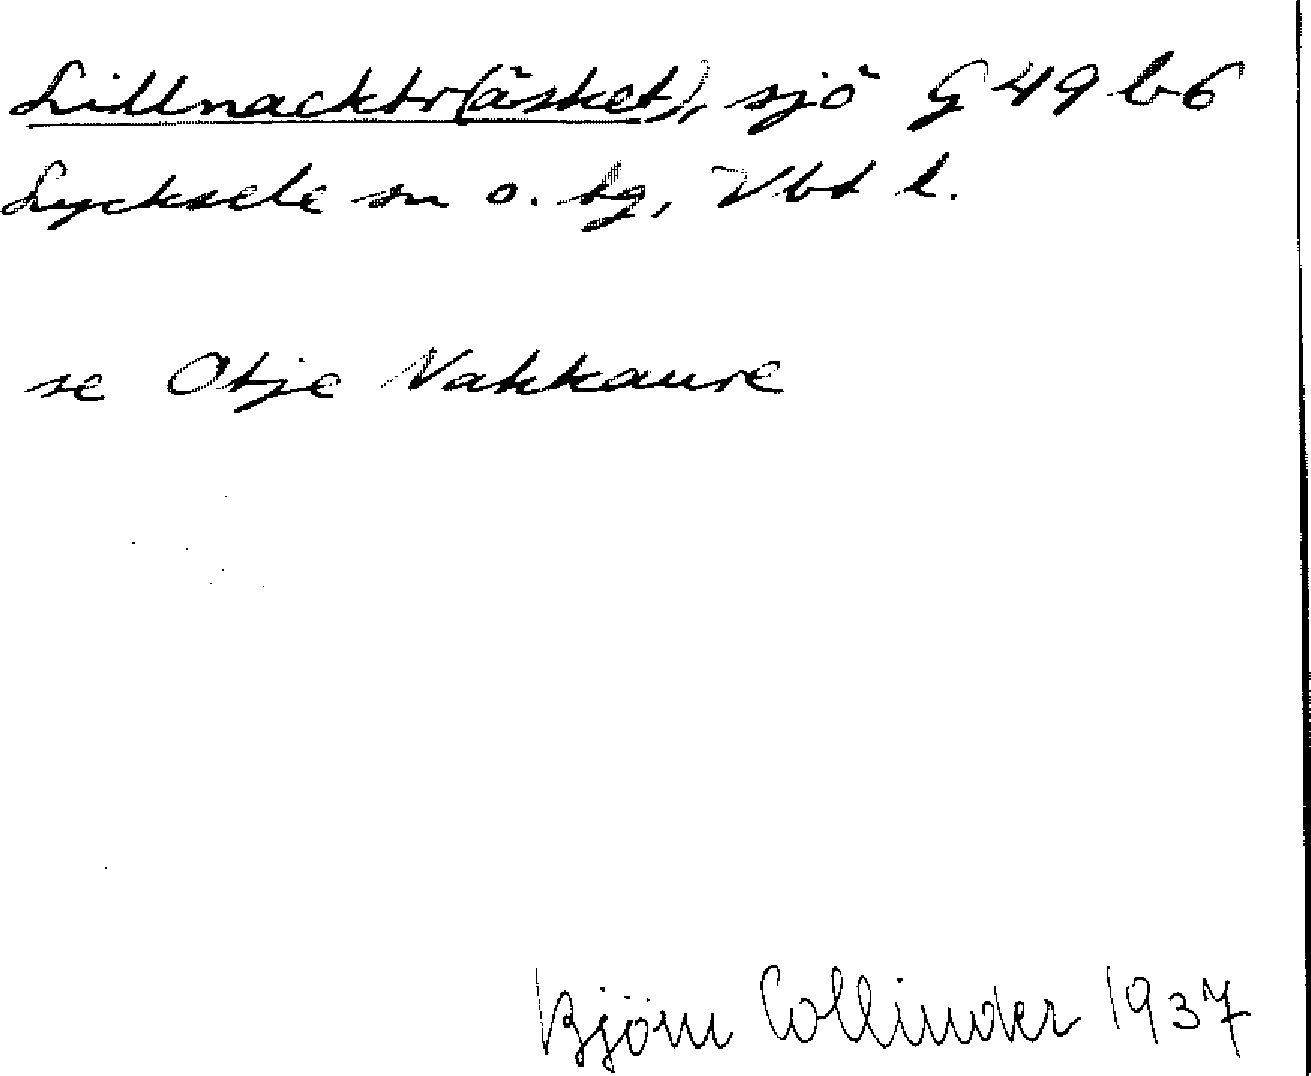 Lillnacktr(äsket), sjö G 49 b6
Lycksele sn o. tg, Vbt l.
se Otje Nakkaure
Björn Collinder 1937